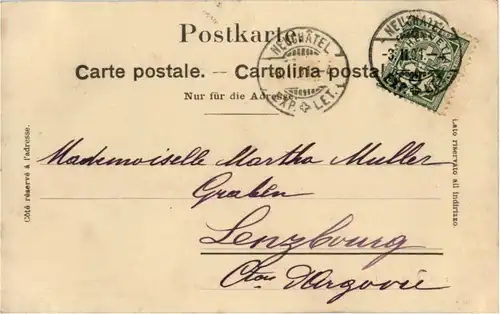 Postkarte.
Carte postale. — Cartolina postale.
Nur für die Adresse.
NEUCHÂTEL
EXP. LET.
NEUCHÂTEL
Côté réservé à l'adresse.
Lato riservato all'indirizzo.
Mademoiselle Martha Muller
Graben
Lenzbourg
Cton d'Argovie